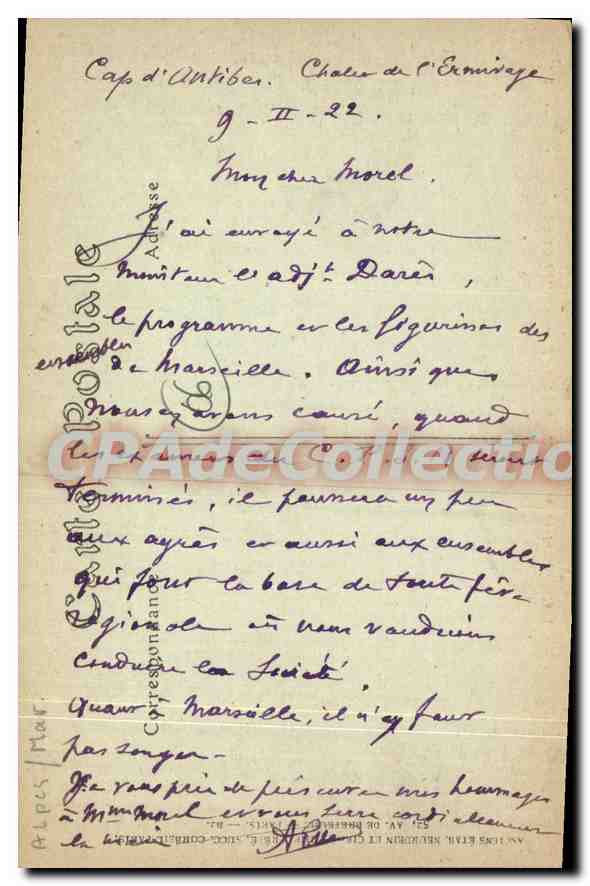 Cap d'Antibes. Chalet de l'Ermitage
9 - II - 22.
Mon cher Morel.
J'ai envoyé à notre
Moniteur l'adjt Darès,
le programme et les figurines des
ensembles
de Marseille. Ainsi que
nous en avons causé, quand
les examens du C. seront
terminés, il poussera un peu
aux agrès et aussi aux ensembles
qui font la base de toute fête
régionale où nous voudrions
conduire la Société.
Quant à Marseille, il n'y faut
pas songer -
Je vous prie de présenter mes hommages
à Mme Morel et vous serre cordialement
la main
Carte Postale
Correspondance
Adresse
ANCIENS ÉTAB. NEURDEIN ET CIE
52, AV. DE BRETEUIL - PARIS
ALPES / Mar.
CPADeCollection